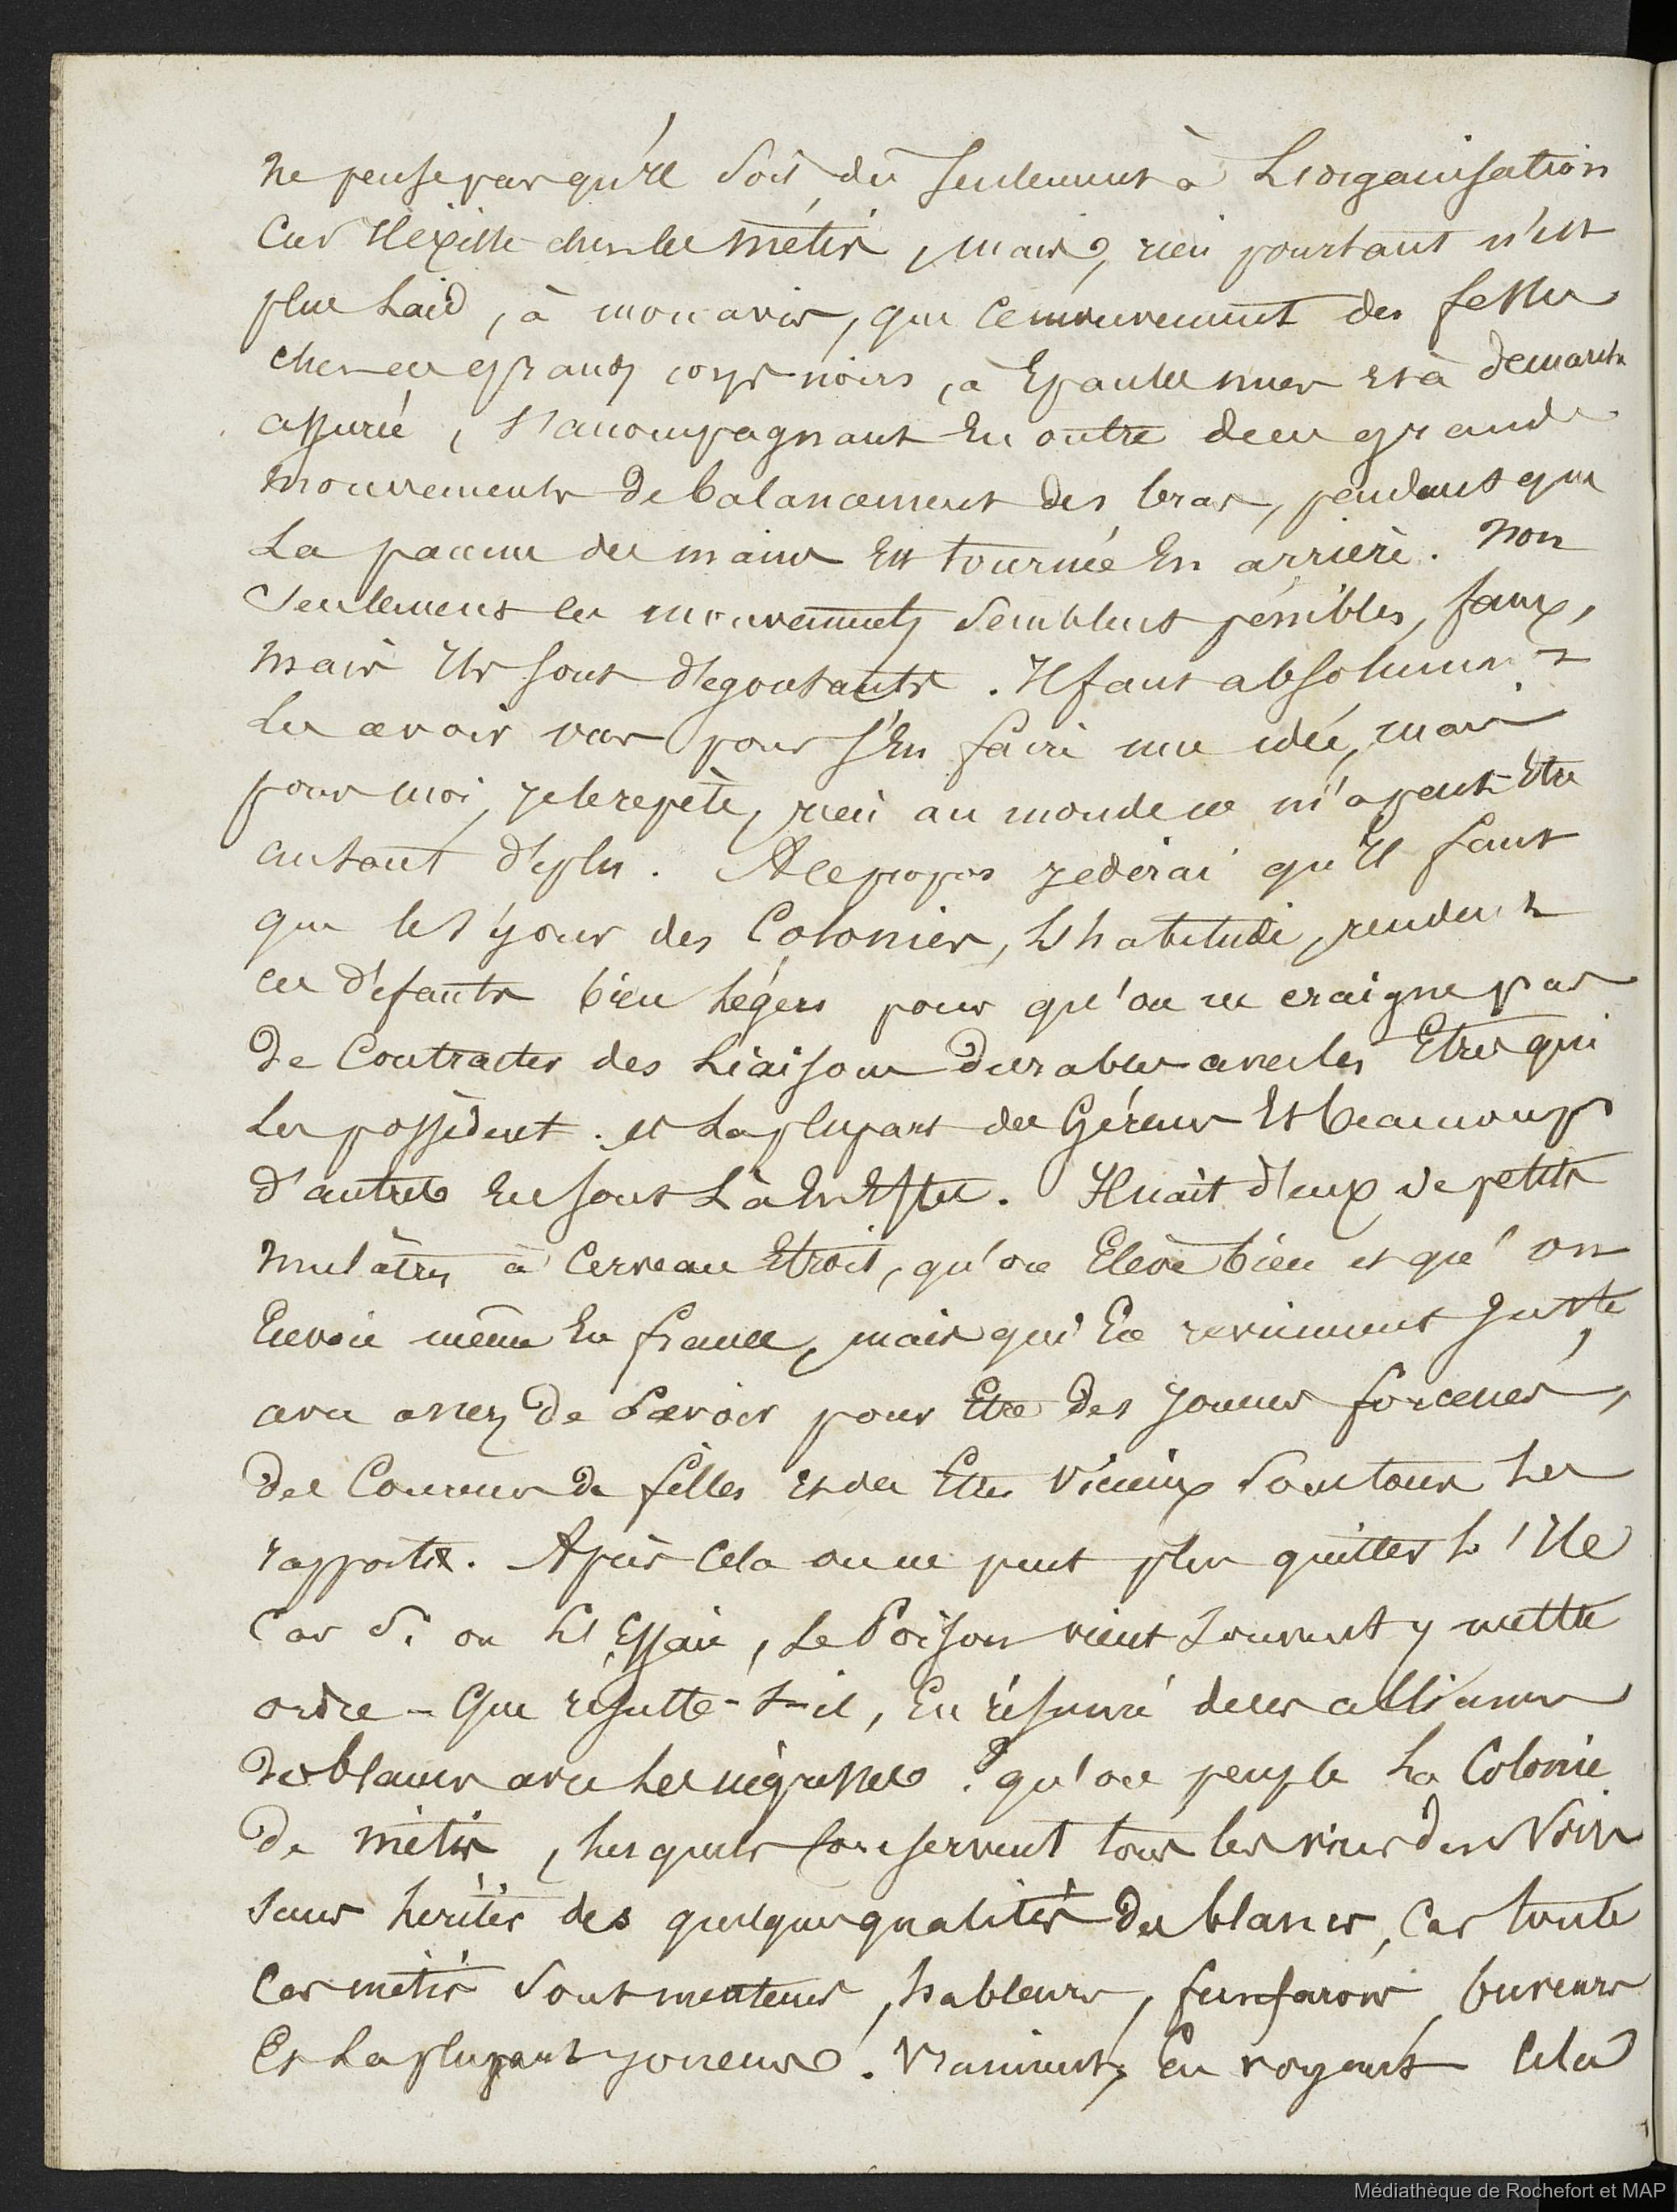 ne pense pas qu'il soit dû seulement à L'organisation
Car il existe chez les métis, mais, rien pourtant n'est
plus laid, à mon avis, que ce mouvement des fesses
chez ces grands corps noirs, à Epaules nues et à demarche
assurée, s'accompagnant En outre de ces grands
mouvements de balancement des bras, pendant que
La paume des mains Est tournée En arrière. Non
Seulement ces mouvements semblent pénibles, faux,
mais ils sont dégoutants. Il faut absolument
Les avoir vus pour s'En faire une idée, mais
pour moi, je le repète, rien au monde ne m'a peut-être
autant déplu. A ce propos je dirai qu'il faut
que le séjour des Colonies, L'habitude, rendent
ces défauts bien Légers pour qu'on ne craigne pas
de Contracter des Liaisons durables avec les Etres qui
Les possèdent. et La plupart des Géreurs Et beaucoup
d'autres En sont Là
Il nait d'eux de petits
mulâtres à Cerveau Etroit, qu'on Elève bien et qu'on
Envoie même En france, mais qui En reviennent juste,
avec assez de Savoir pour Etre des joueurs forcenés,
des Coureurs de filles et des Etres vicieux Sous tous Les
rapports. Après Cela on ne peut plus quitter L'Ile
Car Si on L'Essaie, Le Poison vient souvent y mettre
ordre - Que résulte-t-il, En résumé de ces alliances
des blancs avec Les négresses? qu'on peuple La Colonie
De métis, Lesquels Conservent tous les vices des Noirs
sans hériter des quelques qualités des blancs, Car tous
Ces métis Sont menteurs, hableurs, fanfarons, buveurs
Et La plupart joueurs. Vraiment, En voyant Cela
Médiathèque de Rochefort et MAP